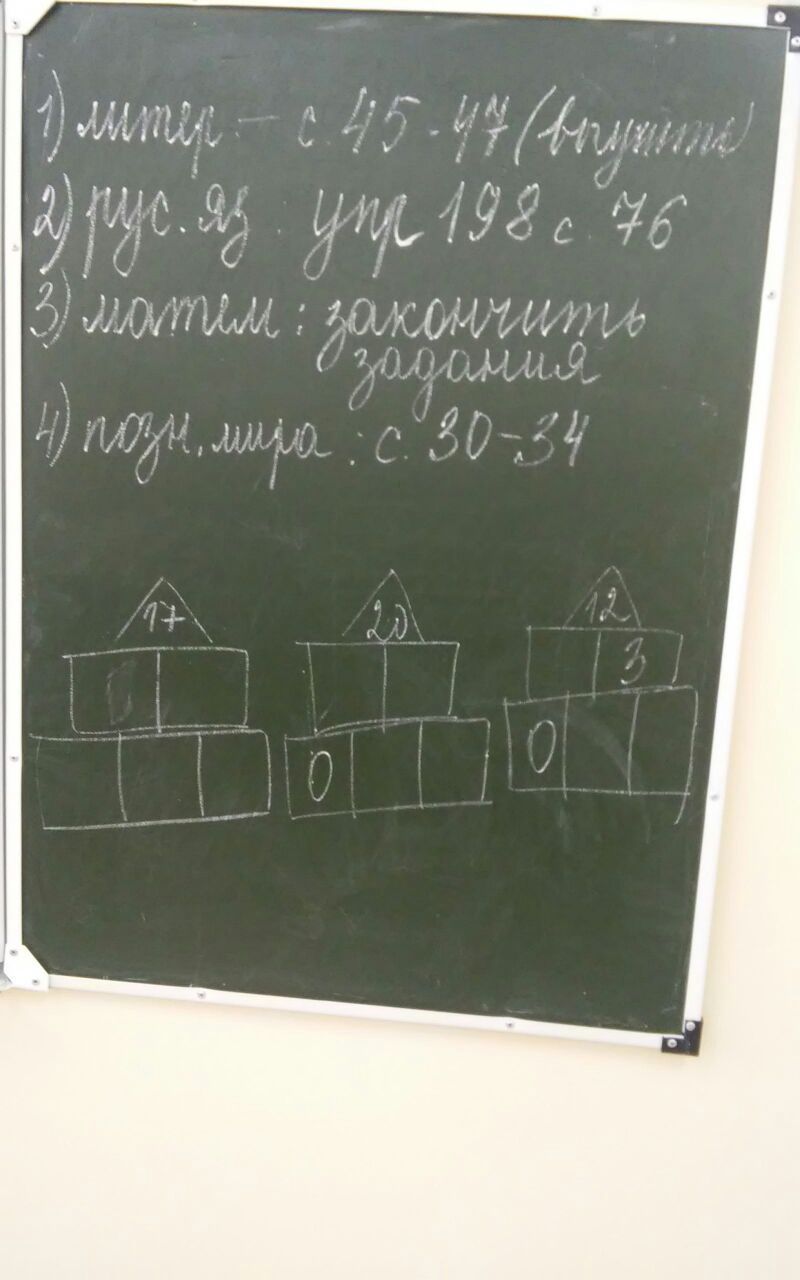 1) литер – с. 45-47 (выучить)
2) рус. яз. упр 198 с. 76
3) матем : закончить
задания
4) позн. мира : с. 30-34
17 20 12
3
0 0